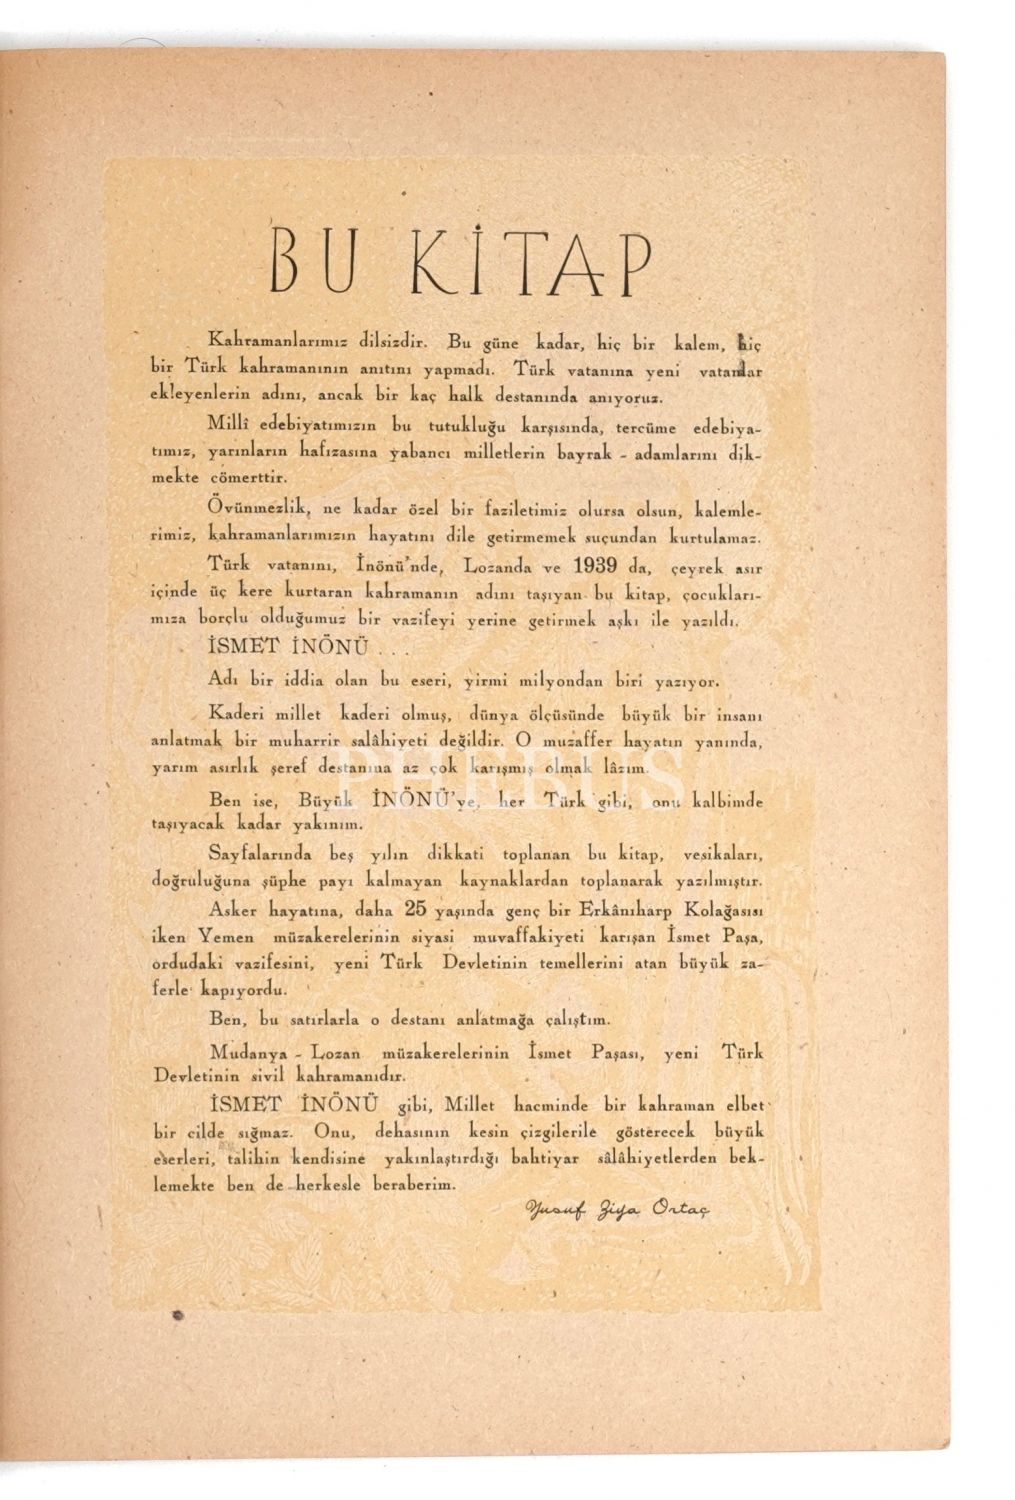 BU KİTAP
Kahramanlarımız dilsizdir. Bu güne kadar, hiç bir kalem, hiç
bir Türk kahramanının anıtını yapmadı. Türk vatanına yeni vatanlar
ekleyenlerin adını, ancak bir kaç halk destanında anıyoruz.
Millî edebiyatımızın bu tutukluğu karşısında, tercüme edebiya-
tımız, yarınların hafızasına yabancı milletlerin bayrak - adamlarını dik-
mekte cömerttir.
Övünmezlik, ne kadar özel bir faziletimiz olursa olsun, kalemle-
rimiz, kahramanlarımızın hayatını dile getirmemek suçundan kurtulamaz.
Türk vatanını, İnönü'nde, Lozanda ve 1939 da, çeyrek asır
içinde üç kere kurtaran kahramanın adını taşıyan bu kitap, çocukları-
mıza borçlu olduğumuz bir vazifeyi yerine getirmek aşkı ile yazıldı.
İSMET İNÖNÜ . . .
Adı bir iddia olan bu eseri, yirmi milyondan biri yazıyor.
Kaderi millet kaderi olmuş, dünya ölçüsünde büyük bir insanı
anlatmak bir muharrir salâhiyeti değildir. O muzaffer hayatın yanında,
yarım asırlık şeref destanına az çok karışmış olmak lâzım.
PHEBUS
Ben ise, Büyük İNÖNÜ'ye, her Türk gibi, onu kalbimde
taşıyacak kadar yakınım.
Sayfalarında beş yılın dikkati toplanan bu kitap, vesikaları,
doğruluğuna şüphe payı kalmayan kaynaklardan toplanarak yazılmıştır.
Asker hayatına, daha 25 yaşında genç bir Erkânıharp Kolağasısı
iken Yemen müzakerelerinin siyasi muvaffakiyeti karışan İsmet Paşa,
ordudaki vazifesini, yeni Türk Devletinin temellerini atan büyük za-
ferle kapıyordu.
Ben, bu satırlarla o destanı anlatmağa çalıştım.
Mudanya - Lozan müzakerelerinin İsmet Paşası, yeni Türk
Devletinin sivil kahramanıdır.
İSMET İNÖNÜ gibi, Millet hacminde bir kahraman elbet
bir cilde sığmaz. Onu, dehasının kesin çizgilerile gösterecek büyük
eserleri, talihin kendisine yakınlaştırdığı bahtiyar sâlâhiyetlerden bek-
lemekte ben de herkesle beraberim.
Yusuf Ziya Ortaç